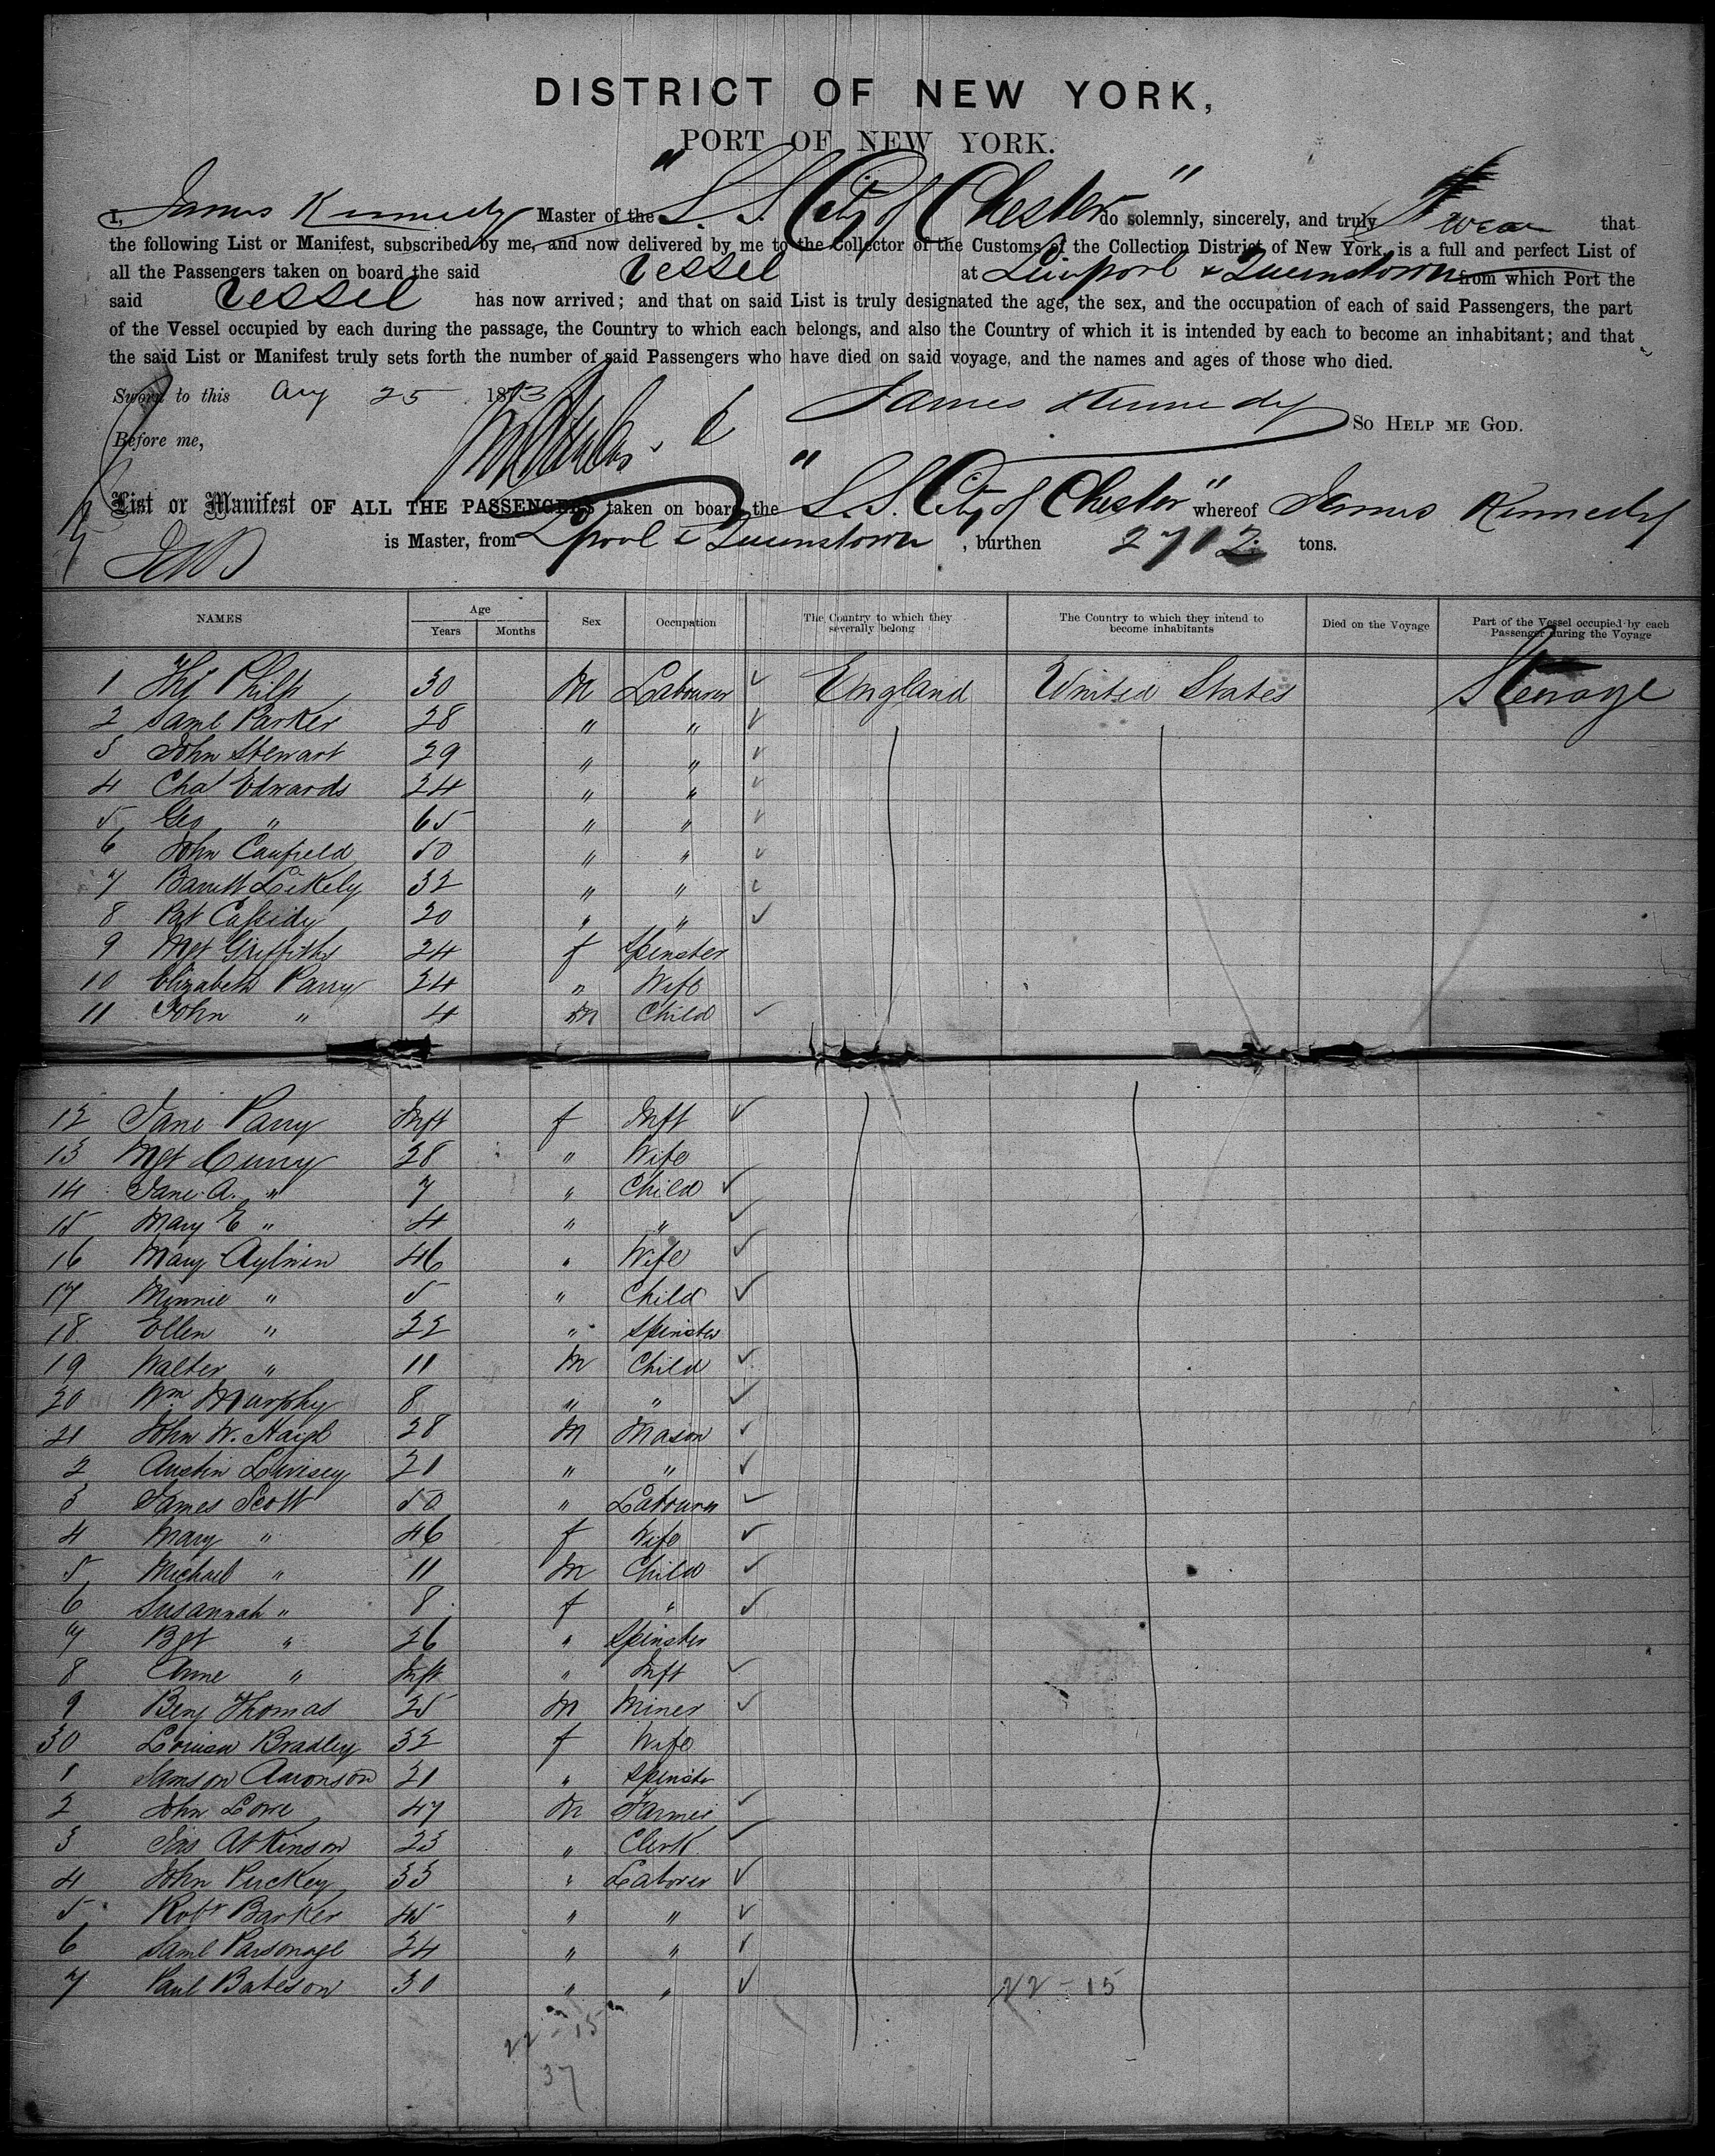 DISTRICT OF NEW YORK,
PORT OF NEW YORK.
I, James Kennedy Master of the "S. S. City of Chester" do solemnly, sincerely, and truly Swear that
the following List or Manifest, subscribed by me, and now delivered by me to the Collector of the Customs of the Collection District of New York, is a full and perfect List of
all the Passengers taken on board the said Vessel at Liverpool & Queenstown from which Port the
said Vessel has now arrived; and that on said List is truly designated the age, the sex, and the occupation of each of said Passengers, the part
of the Vessel occupied by each during the passage, the Country to which each belongs, and also the Country of which it is intended by each to become an inhabitant; and that
the said List or Manifest truly sets forth the number of said Passengers who have died on said voyage, and the names and ages of those who died.
Sworn to this Aug 25 1873 James Kennedy So Help me God.
Before me,
List or Manifest OF ALL THE PASSENGERS taken on board the "S. S. City of Chester" whereof James Kennedy
is Master, from L'pool & Queenstown, burthen 2712 tons.
NAMES Age Years Months Sex Occupation The Country to which they severally belong The Country to which they intend to become inhabitants Died on the Voyage Part of the Vessel occupied by each Passenger during the Voyage
1 Philp 30 M Labourer England United States Steerage
2 Saml Parker 28 " "
3 John Stewart 29 " "
4 Chas Edwards 24 " "
5 Geo " 65 " "
6 John Caufield 50 " "
7 Barnett Likely 32 " "
8 Pat Cassidy 20 " "
9 Mgt Griffiths 24 f Spinster
10 Elizabeth Parry 24 " Wife
11 John " 4 M Child
12 Jane Parry Inft f Inft
13 Mgt Curry 28 " Wife
14 Jane A. " 7 " Child
15 Mary E " 4 " "
16 Mary Aylwin 46 " Wife
17 Minnie " 5 " Child
18 Ellen " 22 " Spinster
19 Walter " 11 M Child
20 Wm Murphy 8 " "
21 John W. Haigh 28 M Mason
2 Austin Livisey 21 " "
3 James Scott 50 " Labourer
4 Mary " 46 f Wife
5 Michael " 11 M Child
6 Susannah " 8 f "
7 Bgt " 26 " Spinster
8 Anne " Inft " Inft
9 Benj Thomas 25 M Miner
30 Louisa Bradley 32 f Wife
1 Samson Aaronson 21 " Spinster
2 John Lowe 47 M Farmer
3 Jas Atkinson 23 " Clerk
4 John Puckey 33 " Laborer
5 Robt Barker 45 " "
6 Saml Parsonage 24 " "
7 Paul Bateson 30 " "
22 - 15
22 - 15
37